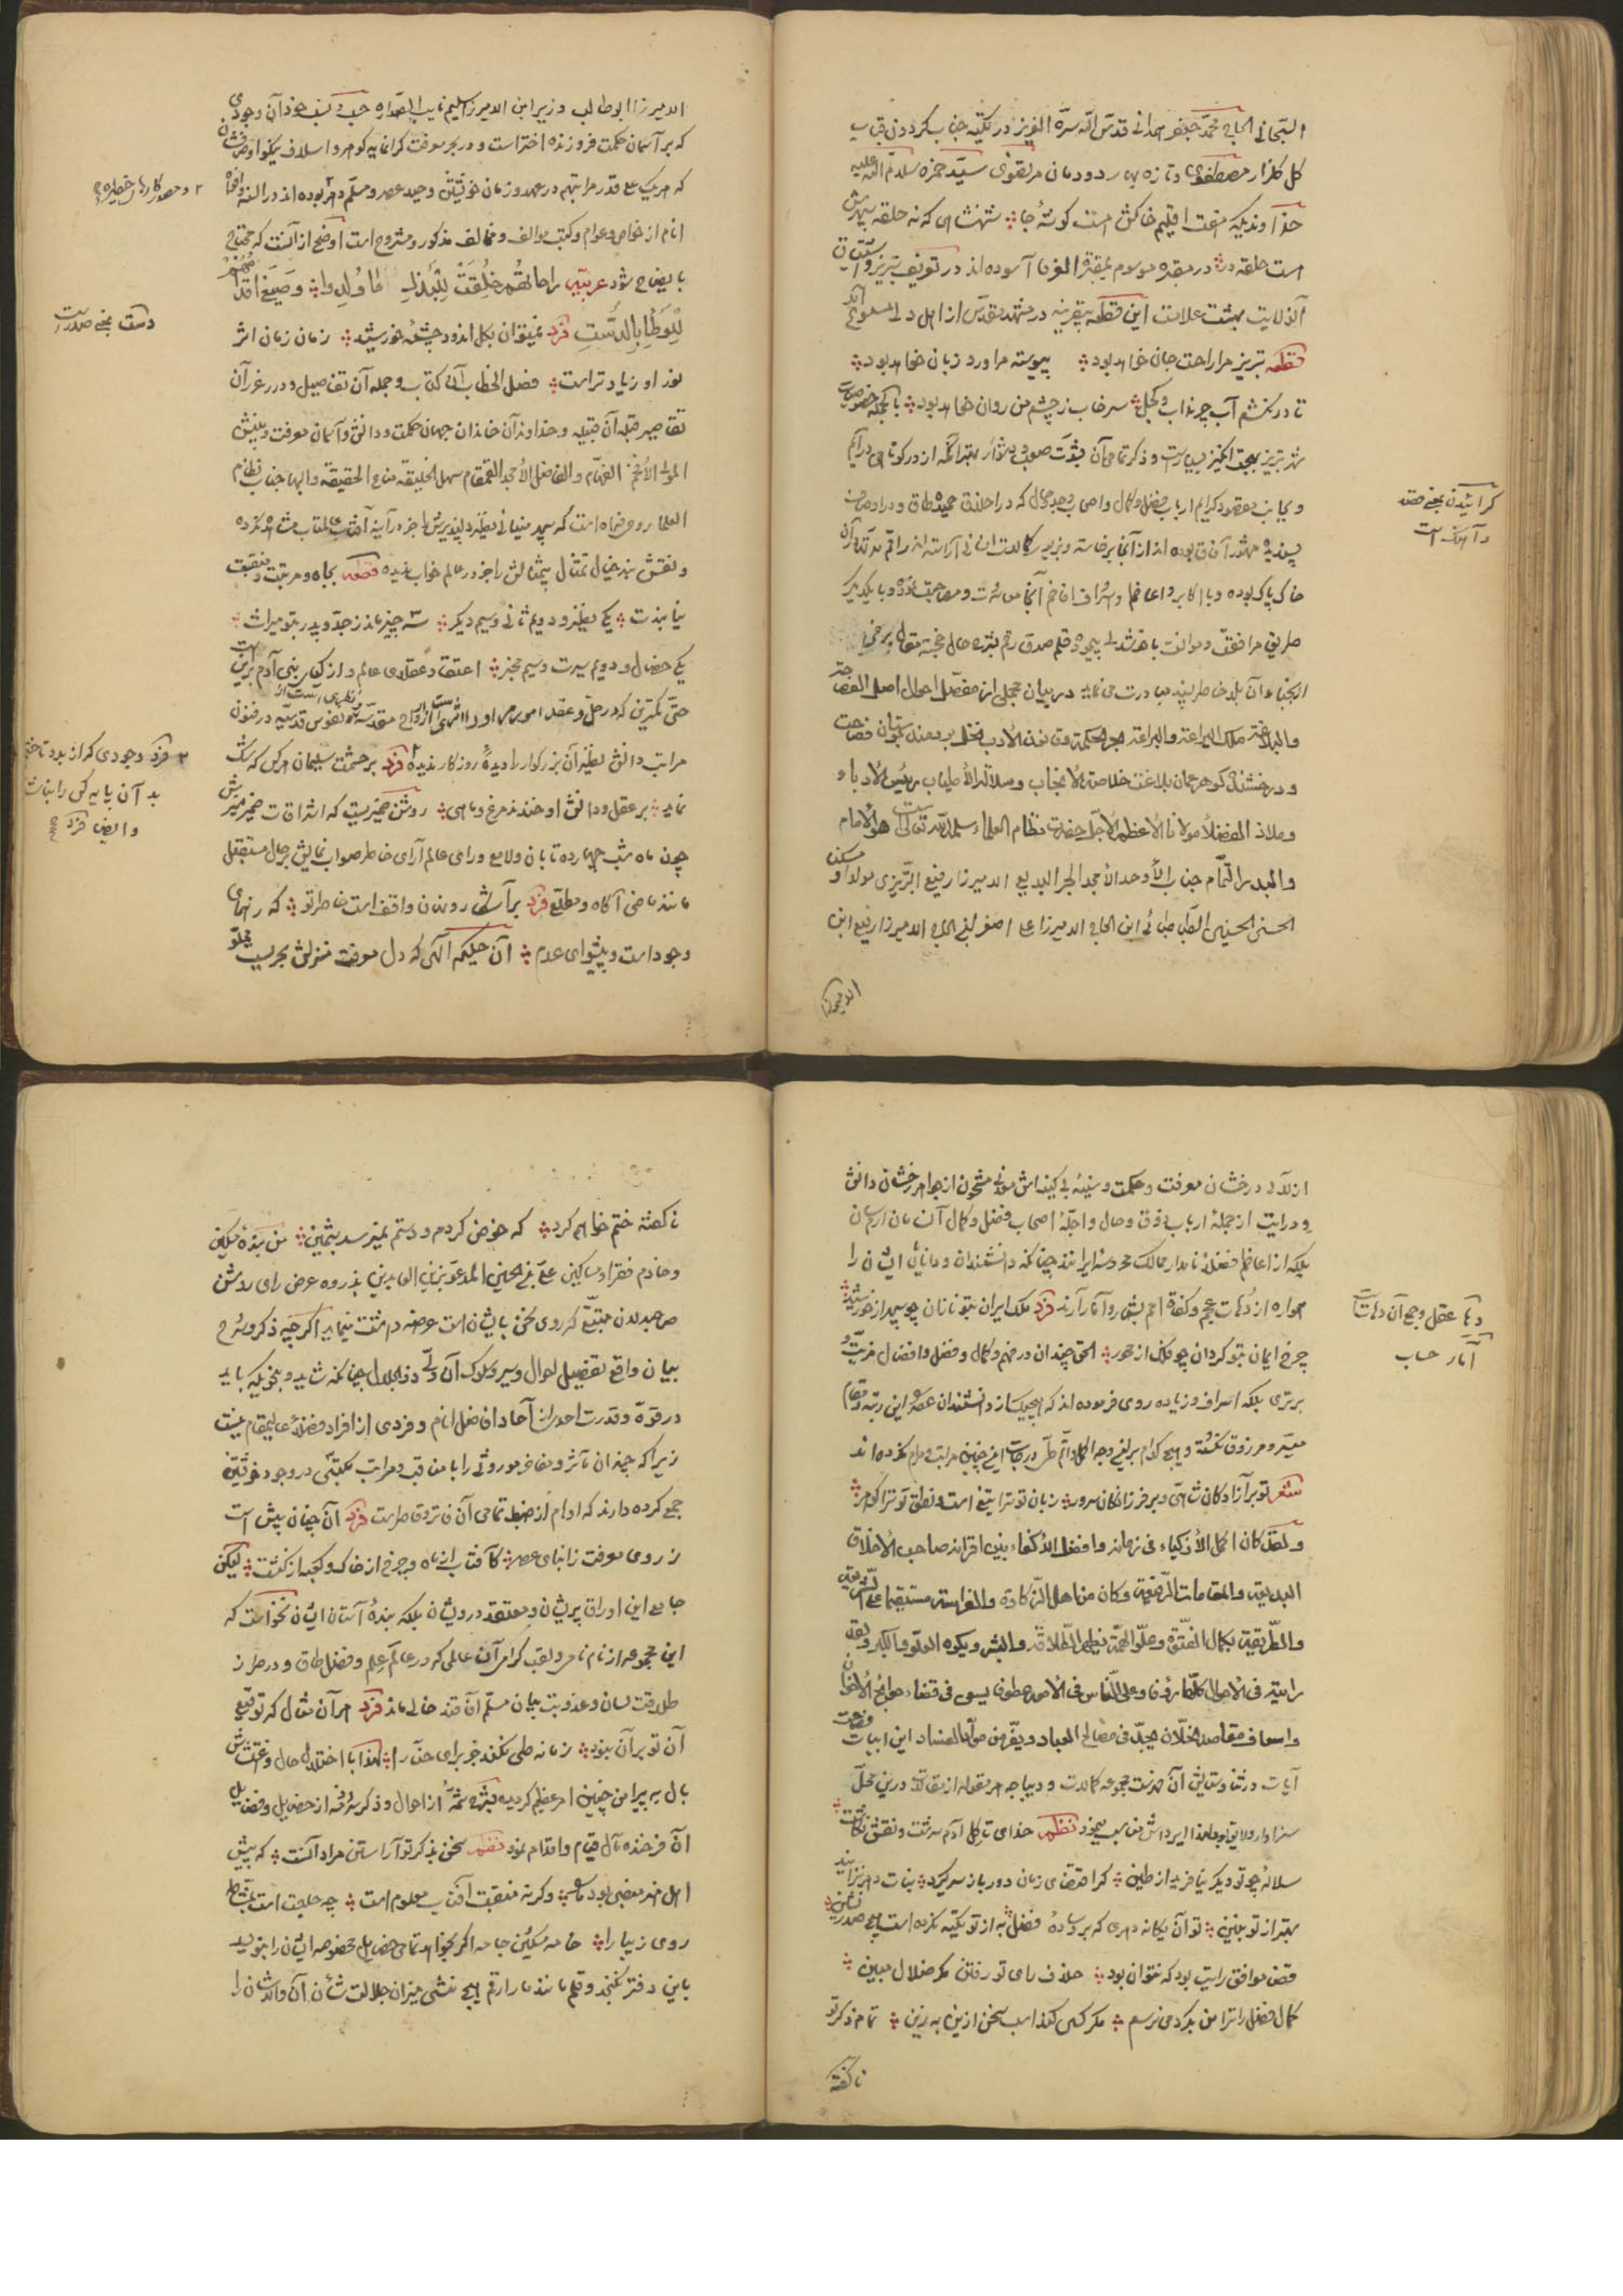 السّبحانی الحاج محمّد جعفر همدانی قدّس اللّه سرّه العزیز در تکیّه جناب کردون قباب
کل کلزار مصطفوی و تازه بهار دودمان مرتضوی سیّد حمزه سلام اللّه علیه
خداوندیکه هفت اقلیم خاکش است کوشهٔ جا شهنشاهی که نه حلقه سپهرش
است حلقه در در مقبره موسوم بمقبرة العرفا آسوده‌اند در تعریف تبریز و اشتیاق
آنولایت بهشت علامت این قطعه بیقرینه در مشهد مقدّس از اهل دلی مسموع
قطعه تبریز مرا راحت جان خواهد بود پیوسته مرا ورد زبان خواهد بود
تا درنکشم آب چرنداب و کجل سرخاب ز چشم من روان خواهد بود بالجمله خصوصیات
شهر تبریز بهجت انکیز بسیار است و ذکر تمامی آن بغایت صعوب و دشوار بهتر آنکه از در کوتاهی درآئیم
و بجانب مقصود کرایم ارباب فضل و کمال و اصحاب وجد و حال که در اخلاق حمیده طاق و در اوصاف
پسندیده مشهور آفاق بوده‌اند از آنجا برخاسته و بزیور کمالات انسانی آراسته‌اند راقم مدّتها در آن
خاک پاک بوده و با اکابر و اعاظم و اشراف افاخم آنجا معاشرت و مصاحبت نموده و با یکدیکر
طریق مرافقت و موالفت باهر شدیم پیموده قلم صدق رقم بشرح حال خجسته مقال برخی
از نجباء آن بلد خاطرپسند مبادرت می‌نماید در بیان مجملی از مفصّل احوال اصل الفصاحة
والبلاغة ملک البراعة والیراعة بحر الحکمة وقانون الادب نخل برومند بوستان فصاحت
و درخشنده کوهر عمان بلاغت خلاصة الانجاب وسلالة الاطیاب رئیس الادباء
وملاذ الفضلاء مولانا الاعظم الاجلّ حضرت نظام العلماء سلمه اللّه تعالی هو الامام
والبدر التّمام جناب الاوحد الامجد الحبر البدیع المیرزا رفیع التّبریزی مولداً و مسکناً
الحسنی الحسینی الطّباطبائی ابن الحاج المیرزا علی اصغر ابن الحاج المیرزا رفیع ابن
المیرزا
کرائیدن بمعنی قصد
و آهنک است
المیرزا ابوطالب وزیر ابن المیرزا سلیم نایب الصّداره حسب و نسب خود آن وجودی
که بر آسمان حکمت فروزنده اختر است و در بحر معرفت کرانمایه کوهر و اسلاف نیکو اوصافشان
که هریک علی قدر مراتبهم در عهد و زمان خویشتن وحید عصر و مسلّم دهر بوده‌اند در السنه و افواه
انام از خواص و عوام و کتب موالف و مخالف مذکور و مشروح است اوضح از آنست که محتاج
بایضاح شود عربیّه راحاتهم خلقت للبذل مذ ولدوا وصیغ اقدامهم
للوطأ بالدّست فرد نمیتوان بکل اندود چشمهٔ خورشید زمان زمان اثر
نور او زیادتر است فصل الخطاب آن کتاب و جمله آن تفاصیل و درر غرر آن
تقاصیر قبله آن قبیله و خداوند آن خاندان جهان حکمت و دانش و آسمان معرفت و بینش
المولی الافخم الفهّام والفاضل الامجد القمقام سهل الخلیقه مناع الحقیقه والبها جناب نظام
العلما روحی فداه است که سپهر مینائی نظیر دلپذیرش را جز در آینه آفتاب عالمتاب مشاهده نکرده
و نقش بند خیال تمثال بیمثالش را جز در عالم خواب ندیده قطعه بجاه و مرتبت و منقبت
نیابندت یکی نظیر و دویم ثانی و سیم دیکر سه چیز ماند ز جدّ و پدر بتو میراث
یکی خصال و دویم سیرت و سیم مخبر اعتقاد عقلای عالم و از کیای بنی آدم برین است
حتّی کمترین که در حلّ و عقد امور مهام اولاً از ارواح مقدّسه و نفوس قدسیّه در فنون
مراتب دانش نظیر آن بزرکوار را دیدهٔ روزکار ندیده فرد بر حشمت سلیمان هرکس که شک
نماید بر عقل و دانش او خندند مرغ و ماهی روشن ضمیریست که اشراقات ضمیر منیرش
چون ماه شب چهارده تابان و لامع و رای عالم آرای خاطر صواب نمایش بر حال مستقبل
مانند ماضی آکاه و مطّلع فرد بر آسمان روندن واقفست خاطر تو که رهنمای
وجود است و پیشوای عدم آن حکیم الهی که دل معرفت منزلش بحریست مملوّ
۲ و مصدر کارهای خطیره
دست بمعنی صدر است
۳ فرد وجودی که از بدو تا ختم
بد آن پایه کس را نباشد
و ایضاً فرد
از لآلی درخشان معرفت و حکمت و سینهٔ بی کینه‌اش معدنی مشحون از جواهر رخشان دانش
و درایت از جملهٔ ارباب ذوق و حال و اجلّهٔ اصحاب فضل و کمال آن سامان
بلکه از اعاظم فضلای نامدار ممالک محروسهٔ ایرانند چنانکه دانشمندان و دانایان ایشان را
همواره از دهات عجم و کفاة امم بشمار و آثار آرند فرد ملک ایران بتو نازان چو سپهر از خورشید
چرخ ایمان بتو کردان چو فلک از محور الحق چندان در فهم و کمال و فضل و افضال مزیّت و
برتری بلکه اسراف و زیاده روی فرموده‌اند که هیچیک از دانشمندان عصر این رتبه و مقام
میسّر و مرزوق نکشته و هیچ کدام برابلغ وجه الکمال تمام طیّ درجات این چنین مراتب و مرام نکرده‌اند
شعر تو بر آزادکان شاهی و بر فرزانکان سرور زبان تو تراتیغ است و نطق تو ترا کوهر
ولقد کان اکمل الاذکیاء فی زمانه وافضل الاکفاء بین اقرانه صاحب الاخلاق
البدیعه والمقامات الرّفیعة وکان من اهل الذّکاوة والفراسة مستقیماً علی الشّریعة
والطّریقة بکمال الفتوّة وعلوّ الهمّة یظهر الطّلاقة والبشر ویکره العلوّ والکبر ولقد
رایته فی الاحوال کلّها رؤفاً وعلی النّاس فی الامور عطوفاً یسعی فی قضاء حوائج الاخوان
واسعاف مقاصد الخلّان یجدّ فی مصالح العباد ویفرّ من موآد الفساد این ابیات فصاحت
آیات در ثنا و ستایش آن فهرست مجموعه کمالات و دیباجه هر مقوله از مقالات درین محلّ
سزاوار و لایق بود لهذا ایرادش مناسب نمود نظم خدای تا کل آدم سرشت و نقش نکاشت
سلالهٔ چو تو دیکر نیافرید از طین کر اقتضای زمان دور باز سر کیرد بنات دهر نزایند
بهتر از تو بنین تو آن یکانه دهری که بر وسادهٔ فضل به از تو تکیّه نکرده است هیچ صدر نشین
قضا موافق رایت بود که نتوان بود خلاف رای تو رفتن مکر ضلال مبین
کمال فضل تو را من بکرد می نرسم مکر کسی کند اسب سخن ازین به زین تمام ذکر تو
ناکفته
دها عقل و جمع آن دهات است
آمار حساب
ناکفته ختم خواهم کرد که خوض کردم و دستم نمیرسد بثمین من بندهٔ مسکین
و خادم فقرا و مساکین علی نقی الحسینی المدعوّ بزین العابدین بذروه عرض رای روشن
صاحبدلان متتبّع که روی سخن بایشان است عرضه داشت مینماید اکرچه ذکر و شرح
بیان واقع تفصیل احوال و سیر و سلوک آن ولّی ذوالجلال چنانکه شاید و بنحویکه باید
در قوّه و قدرت احدی از آحاد افاضل انام و فردی از افراد فضلای عالیمقام نیست
زیرا که چندان مآثر و مفاخر موروثی را با مناقب و مراتب مکتسبی در وجود خویشتن
جمع کرده دارند که اوهام از ضبط تمامی آن فاتر و قاصرست فرد آن چنان بیش است
از روی معرفت ز ابنای عصر کافتاب از ماه و چرخ از خاک و کعبه از کنشت لیکن
جامع این اوراق پریشان و معتقد درویشان بلکه بندهٔ آستان ایشان نخواست که
این مجموعه از نام نامی و لقب کرامی آن عالمی که در عالم علم و فضل طاق و در طراز
طلاقت لسان و عذوبت بیان مسلّم آفاقند خالی ماند فرد هر آن مثال که توقیع
آن تو بر آن نبود زمانه طی نکند جز برای حنّا را لهذا با اختلال حال و اغتشاش
بال به پیرامن چنین امر عظیم کردیده بشرح شمّهٔ از احوال و ذکر شرفه از خصایل و فضایل
آن فرخنده مآل قیام و اقدام نمود نظم سخن بذکر تو آراستن مراد آنست که پیش
اهل هنر منصبی بود ما را وکرنه منقبت آفتاب معلوم است چه حاجت است بمشّاطه
روی زیبا را خامهٔ مسکین جامه اکر بخواهد تمامی خصایل مخصوصه ایشان را بنویسد
باین دفتر نکنجد و قلم مانند مار ارقم هیچ منشی میزان جلالت شأن آن والاشان را